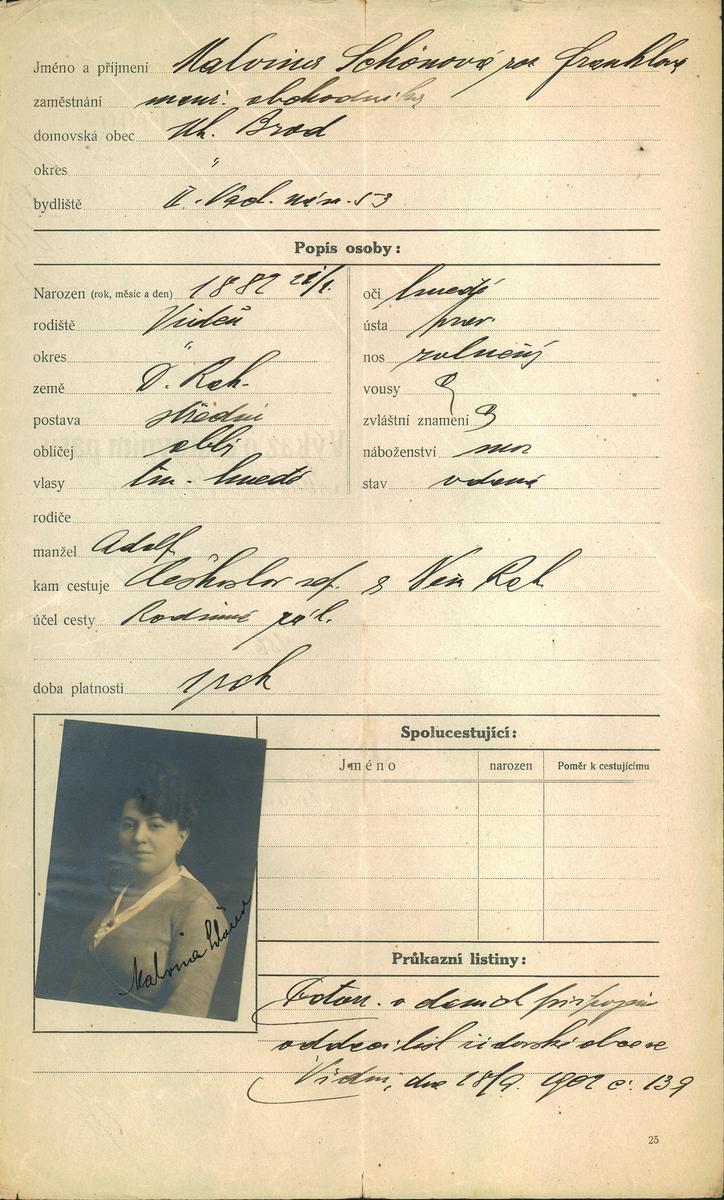 Jméno a příjmení Malvina Schönová roz Franklova
zaměstnání manž. obchodníka
domovská obec Uh. Brod
okres "
bydliště II. Vad. nám. 53
Popis osoby:
Narozen (rok, měsíc a den) 1882
rodiště Vídeň
okres "
země D. Rak.
postava střední
obličej obl.
vlasy tm. hnedé
oči hnedé
ústa prav.
nos
vousy
zvláštní znamení
náboženství moz
stav vdaná
rodiče
manžel Adolf
kam cestuje Českoslov rep. Něm Rak
účel cesty Rodinné zál.
doba platnosti 1 rok
Spolucestující:
Jméno narozen Poměr k cestujícímu
Malvina Schönová
Průkazní listiny:
o dom. připojen
oddací list židovské obce ve
Vídni, dne 18/9. 1902 č. 139
25